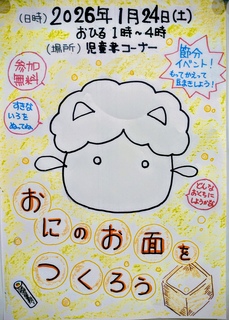 (日時) 2026年1月24日(土)
おひる1時～4時
(場所) 児童書コーナー
節分
イベント!
もってかえって
豆まきしよう!
参加
無料
すきな
いろを
ぬってね
どんな
おくちに
しようかな
おにのお面を
つくろう